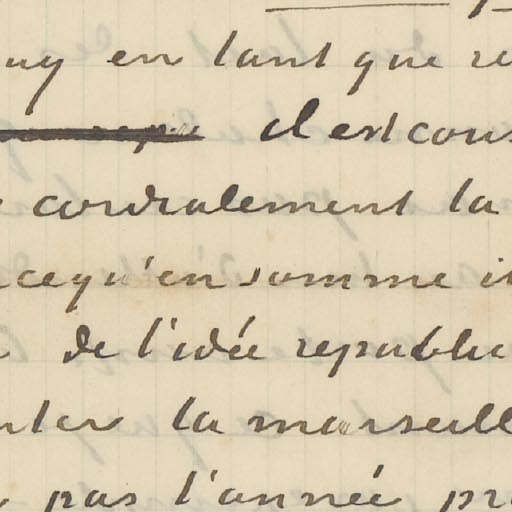 uy en tant que re
il est cons
cordialement la
cequ'en somme il
de l'idée republic
nter la marseill
pas l'année pr